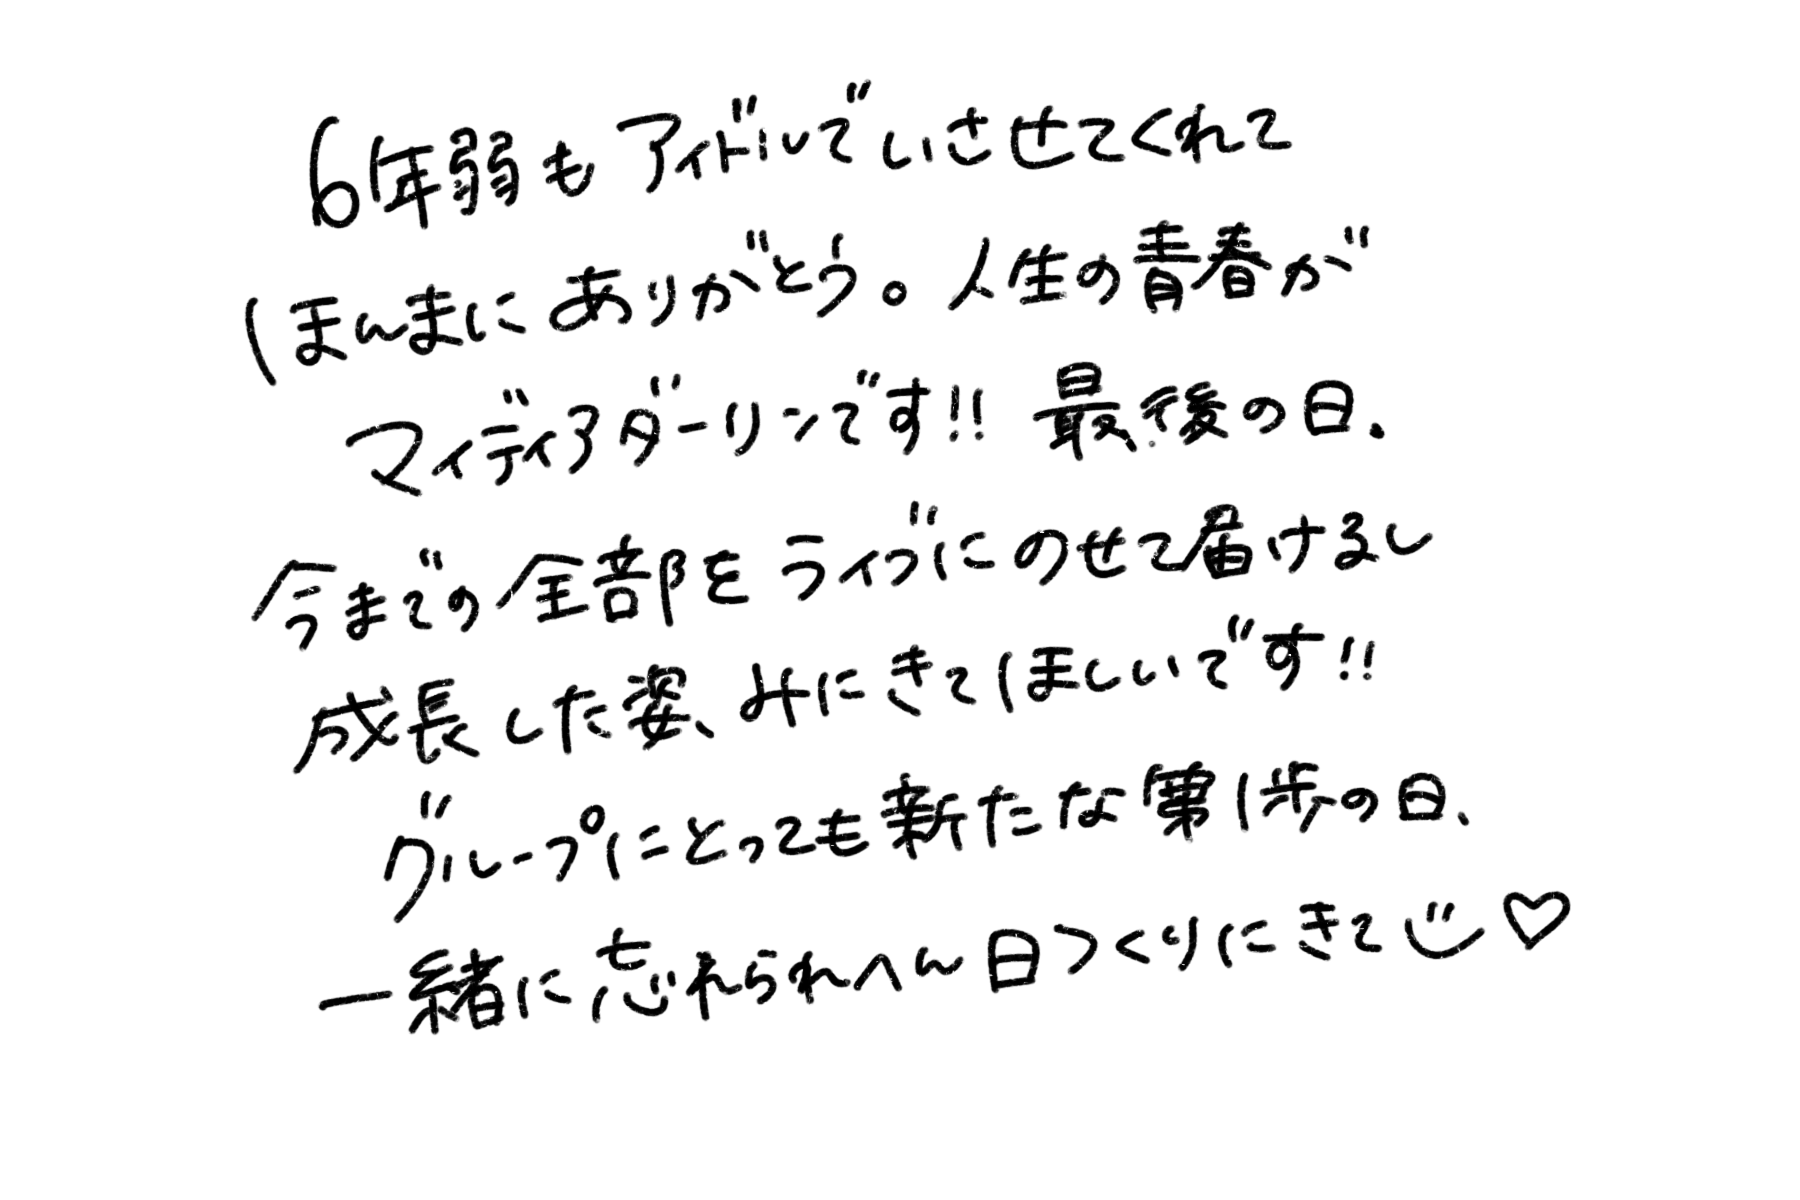 6年弱もアイドルでいさせてくれて
ほんまにありがとう。人生の青春が
マイディアダーリンです!! 最後の日、
今までの全部をライブにのせて届けるし
成長した姿、みにきてほしいです!!
グループにとっても新たな第1歩の日、
一緒に忘れられへん日つくりにきて♡